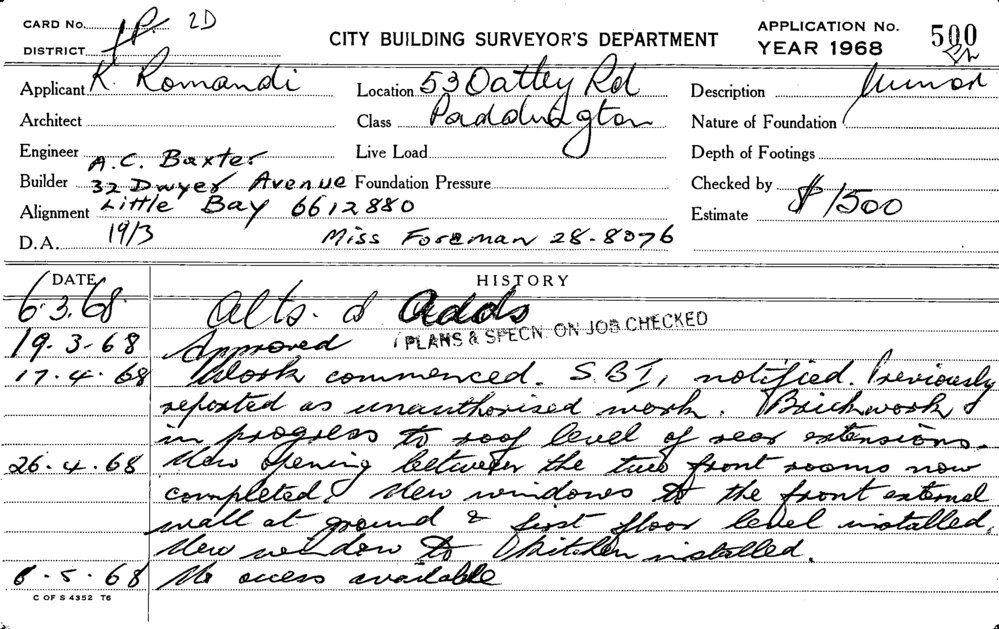 CARD No. 2D
DISTRICT
CITY BUILDING SURVEYOR'S DEPARTMENT
APPLICATION No. 500
YEAR 1968
Applicant K. Romandi
Location 53 Oatley Rd
Description Minor
Architect
Class Paddington
Nature of Foundation
Engineer
Live Load
Depth of Footings
A.C. Baxter
Builder 32 Dwyer Avenue
Foundation Pressure
Checked by
Alignment Little Bay 6612880
Estimate $1500
D.A. 19/3 Miss Foreman 28-8076
DATE HISTORY
6.3.68 Alts. & Adds
19.3.68 Approved PLANS & SPECN. ON JOB CHECKED
17.4.68 Work commenced. S.B.I. notified. Previously
reported as unauthorised work. Brickwork
in progress to roof level of rear extensions.
26.4.68 New opening between the two front rooms now
completed. New windows to the front external
wall at ground & first floor level installed.
New window to kitchen installed.
8.5.68 No access available
C OF S 4352 T6